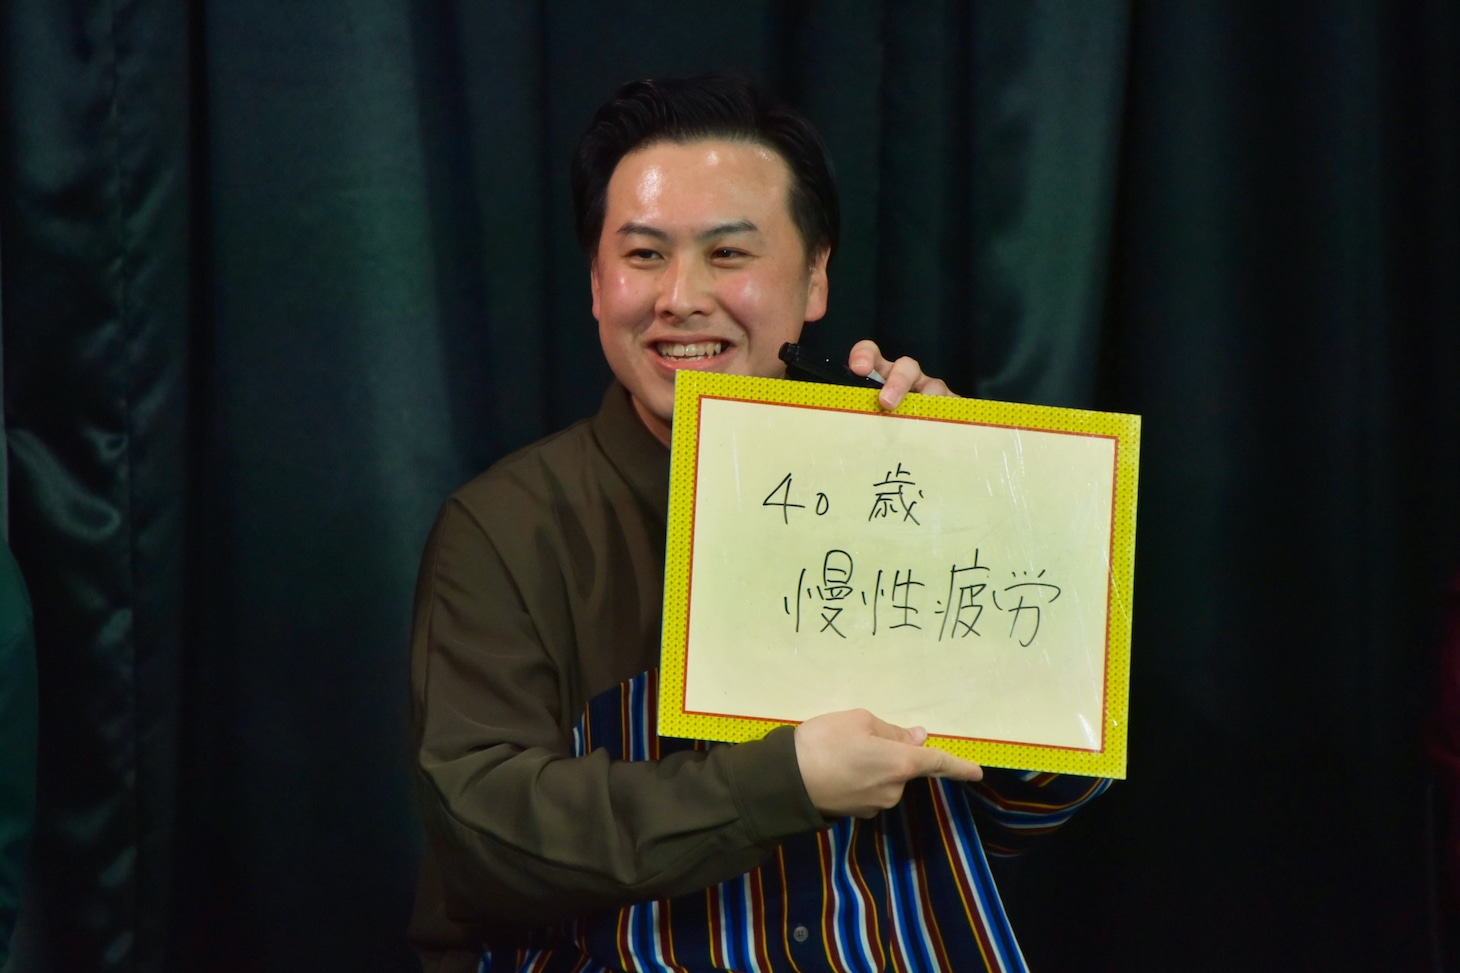 40歳
慢性疲労